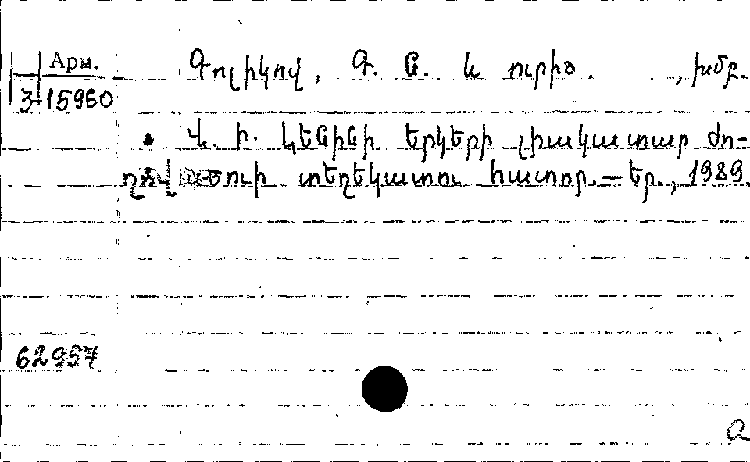 Арм.
3-15960
Գոլիկով, Գ. Ն. և ուրիշ. , խմբ.
Վ. Ի. Լենինի երկերի լիակատար ժո-
ղով ածուի տեղեկատու հատոր.— Եր., 1989.
62957
a